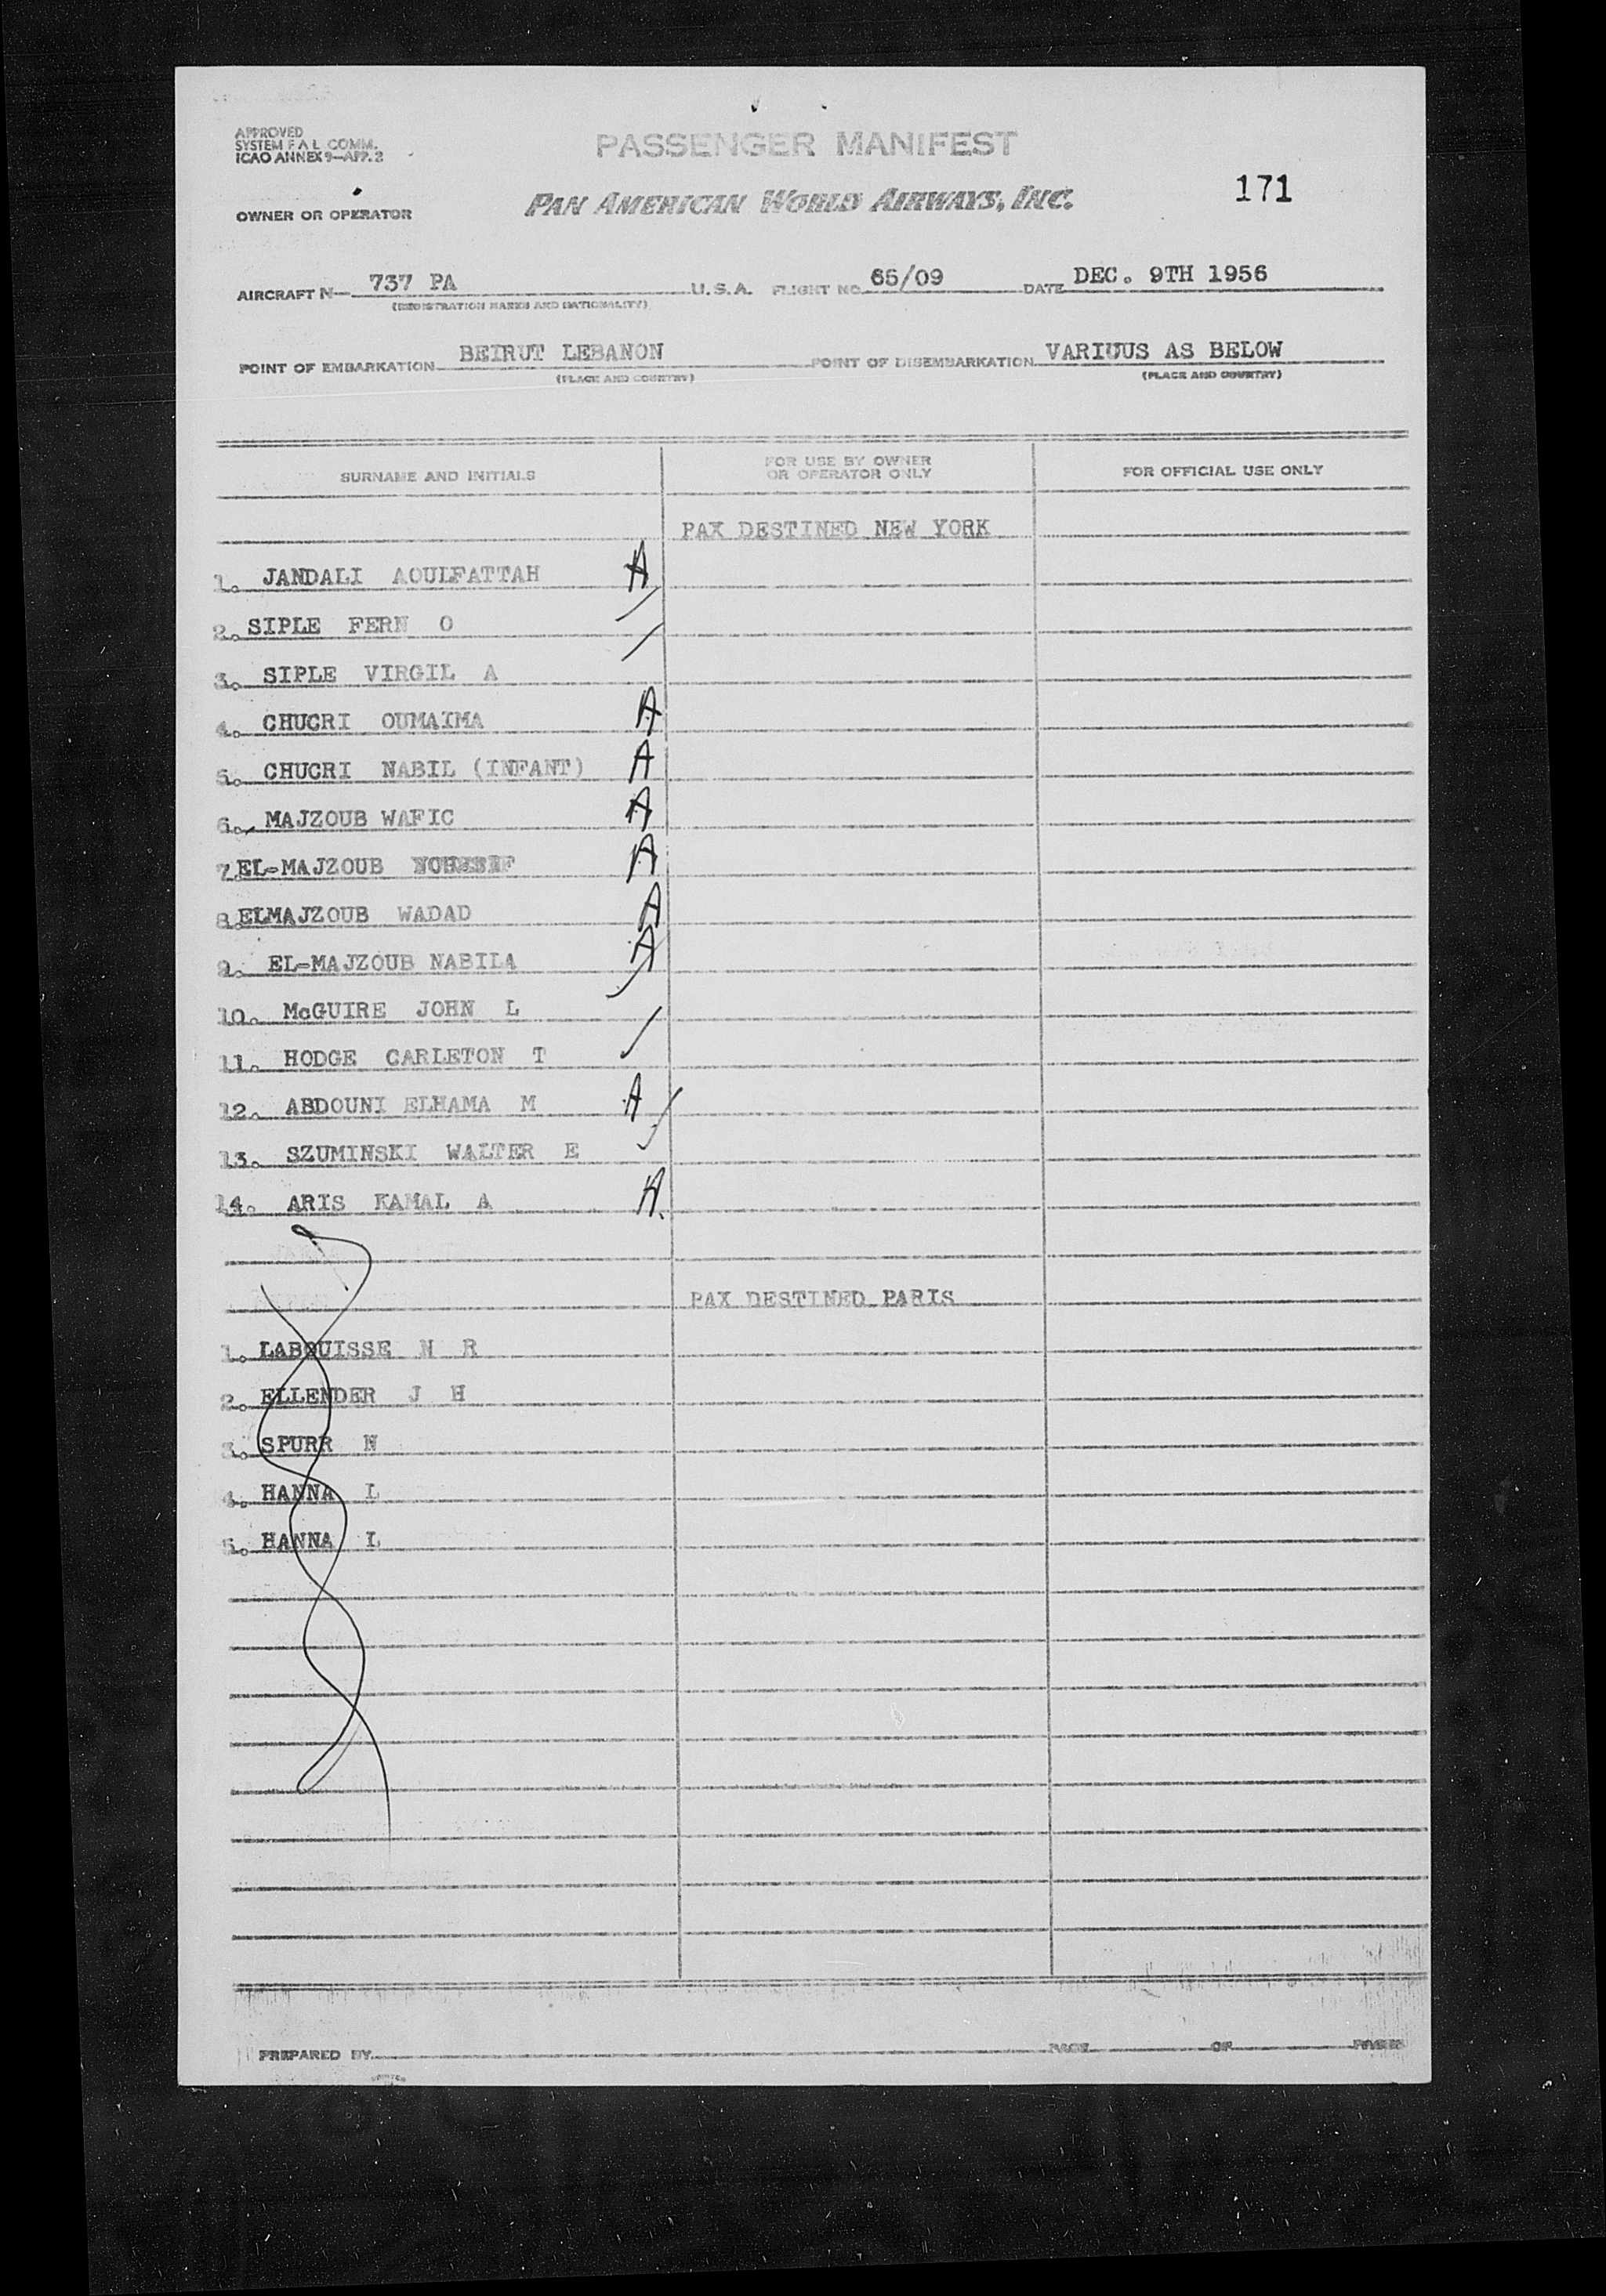 APPROVED
SYSTEM F A L COMM.
ICAO ANNEX 9—APP. 2
PASSENGER MANIFEST
OWNER OR OPERATOR PAN AMERICAN WORLD AIRWAYS, INC. 171
AIRCRAFT N— 737 PA U.S.A. FLIGHT NO. 65/09 DATE DEC. 9TH 1956
(REGISTRATION MARKS AND NATIONALITY)
POINT OF EMBARKATION BEIRUT LEBANON POINT OF DISEMBARKATION VARIUUS AS BELOW
(PLACE AND COUNTRY) (PLACE AND COUNTRY)
SURNAME AND INITIALS FOR USE BY OWNER OR OPERATOR ONLY FOR OFFICIAL USE ONLY
PAX DESTINED NEW YORK
1. JANDALI AOULFATTAH A
2. SIPLE FERN O
3. SIPLE VIRGIL A
4. CHUCRI OUMAIMA A
5. CHUCRI NABIL (INFANT) A
6. MAJZOUB WAFIC A
7. EL-MAJZOUB A
8. ELMAJZOUB WADAD A
9. EL-MAJZOUB NABILA A
10. McGUIRE JOHN L
11. HODGE CARLETON T
12. ABDOUNI ELHAMA M A
13. SZUMINSKI WALTER E
14. ARIS KAMAL A A
PAX DESTINED PARIS
1. LABOUISSE N R
2. ELLENDER J H
3. SPURR N
4. HANNA L
5. HANNA L
PREPARED BY PAGE OF PAGES